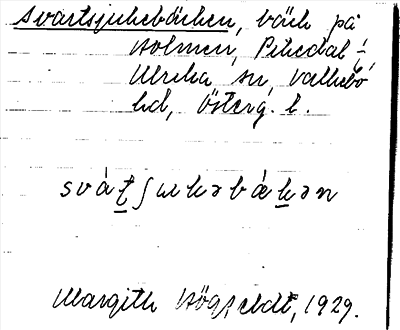 Svartsjukebäcken, bäck på
Holmen, Pikedal i
Ulrika sn, Valkebo
hd, Österg. l.
svát̲ʃukəbǽk̲ən
Margith Högfeldt, 1929.